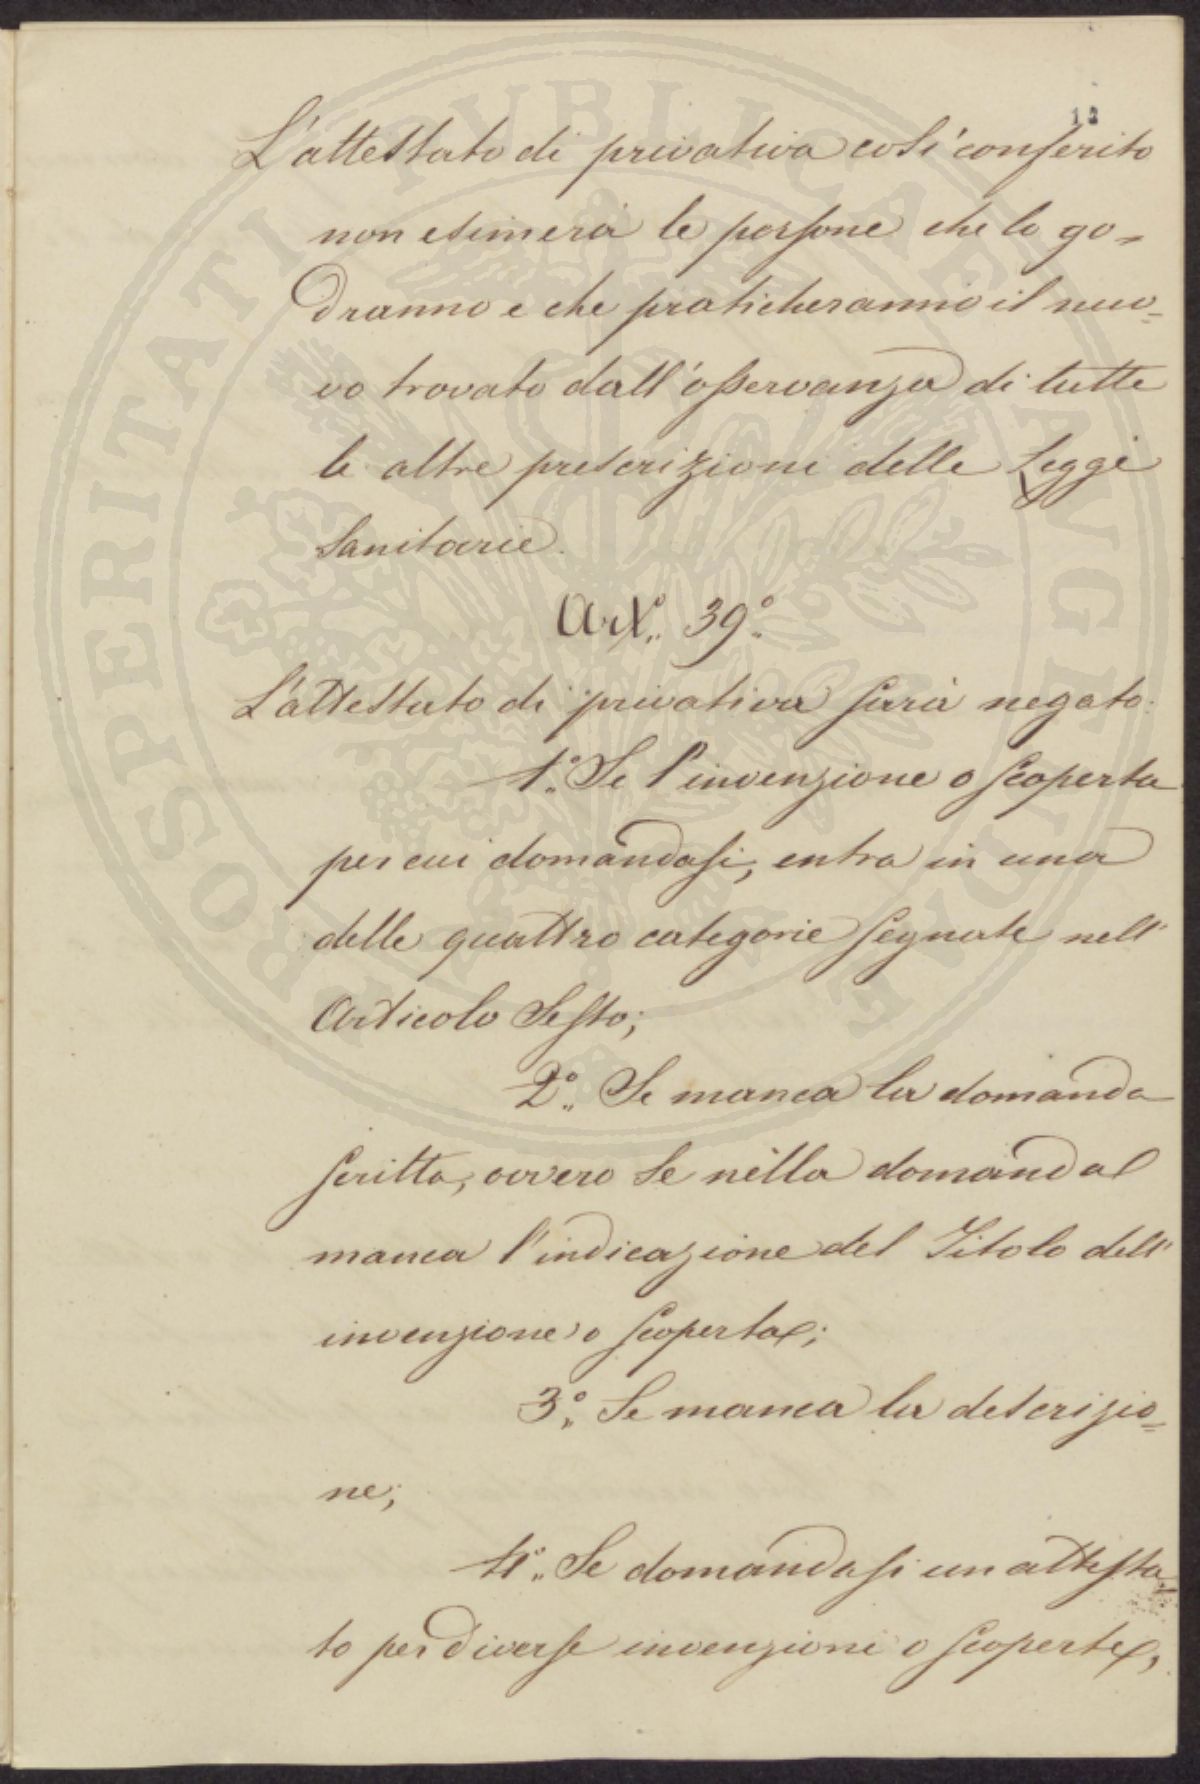 12
L'attestato di privativa così conferito
non esimerà le persone che lo go=
dranno e che praticheranno il nuo=
vo trovato dall'osservanza di tutte
le altre prescrizioni delle Leggi
Sanitarie.
Art.° 39.°
L'attestato di privativa sarà negato:
1.° Se l'invenzione o scoperta
per cui domandasi, entra in una
delle quattro categorie segnate nell'
Articolo Sesto;
2.° Se manca la domanda
scritta, ovvero se nella domanda
manca l'indicazione del Titolo dell'
invenzione o scoperta;
3.° Se manca la descrizio=
ne;
4.° Se domandasi un attesta=
to per diverse invenzioni o scoperte,
PROSPERITATI PVBLICAE AVGENDAE